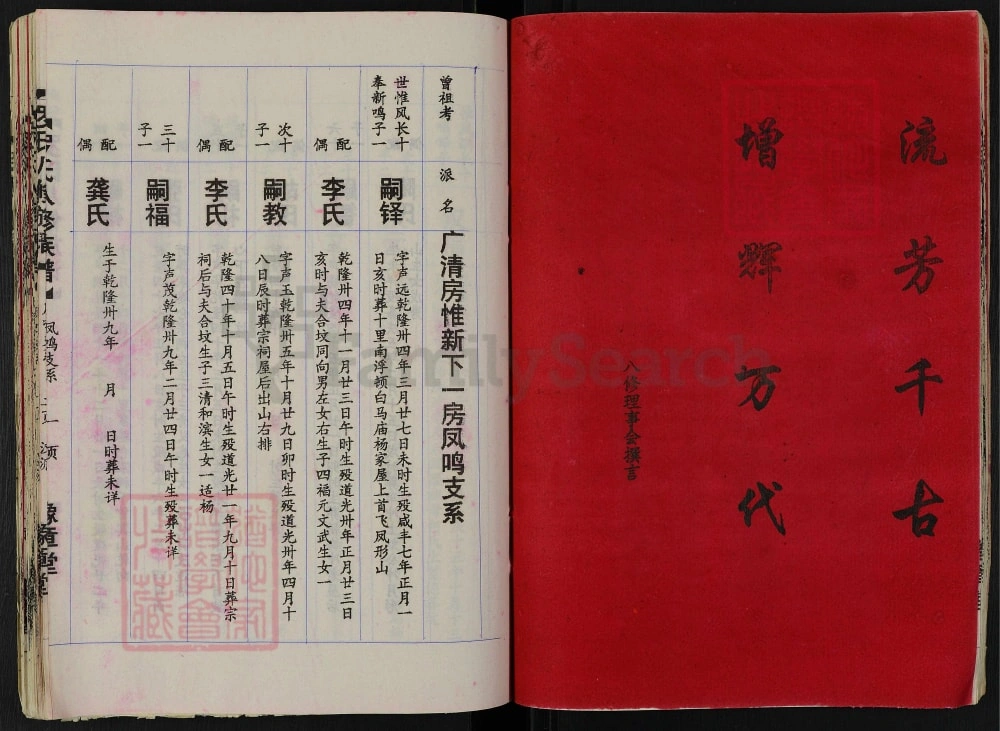 流芳千古
增辉万代
八修理事会撰言
曾祖考
派名
广清房惟新下一房凤鸣支系
世惟风长十
奉新鸣子一
嗣铎
字声远乾隆卅四年三月廿七日未时生殁咸丰七年正月一
日亥时葬十里南浮顿白马庙杨家屋上首飞凤形山
配
偶
李氏
乾隆卅四年十一月廿三日午时生殁道光卅年正月廿三日
亥时与夫合坟同向男左女右生子四福元文武生女一
次十
子一
嗣教
字声玉乾隆卅五年十月廿九日卯时生殁道光卅年四月十
八日辰时葬宗祠屋后出山右排
配
偶
李氏
乾隆四十年十月五日午时生殁道光廿一年九月十日葬宗
祠后与夫合坟生子三清和滨生女一适杨
三十
子一
嗣福
字声茂乾隆卅九年二月廿四日午时生殁葬未详
配
偶
龚氏
生于乾隆卅九年 月 日时葬未详
凤鸣支系
豫章堂
FamilySearch